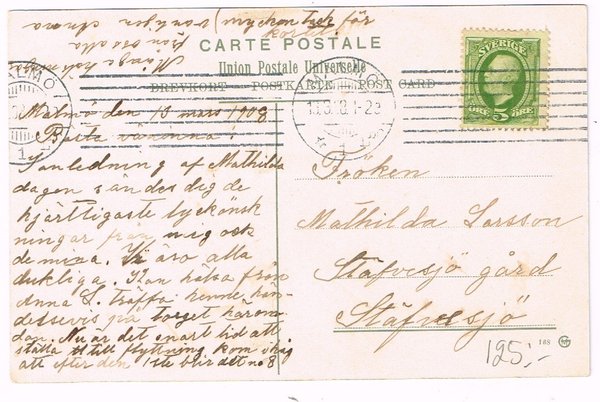 Många hälsningar
från oss alla
vänligen Anna
(mycket tack för
kortet)
CARTE POSTALE
Union Postale Universelle
BREVKORT - POSTKARTE - POST CARD
SVERIGE
5 ÖRE
MALMÖ
1
MALMÖ
13.3.8.1-2
1
Malmö den 13 mars 1908
Bästa väninna!
I anledning af Mathilda
dagen sändes dig de
hjärtligaste lyckönsk
ningar från mig och
de mina. Vi äro alla
dukliga. Kan hälsa från
Anna L. träffa henne hän-
dessevis på torget härom
dan. Nu är det snart tid att
ställa till flyttning kom ihåg
att efter den 1ste blir det no 8
Fröken
Mathilda Larsson
Stäfvesjö gård
Stäfvesjö
168
125:-